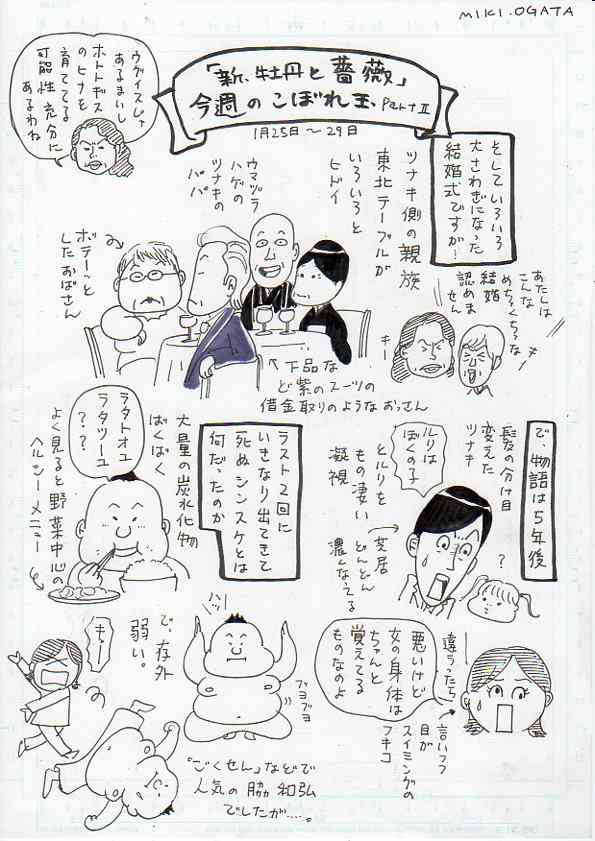 MIKI.OGATA
「新、牡丹と薔薇」
今週のこぼれ玉、Part II
1月25日〜29日
ウグイスじゃ
あるまいし
ホトトギス
のヒナを
育ててる
可能性充分に
あるわね
そしていろいろ
大さわぎになった
結婚式ですが!
ツナキ側の親族
東北テーブルが
いろいろと
ヒドイ
ウマヅラ
ハゲの
ツナキの
パパ
ボテーっと
したおばさん
あたしは
こんな
めちゃくちゃな
結婚
認めま
せん
キー
キー
↑下品な
ど紫のスーツの
借金取りのようなおっさん
で、物語は5年後
髪の分け目
変えた
ツナキ
?
ルリは
ぼくの子
とルリを
もの凄い
凝視
芝居
どんどん
濃くなってる
ラスト2回に
いきなり出てきて
死ぬシンスケとは
何だったのか
大量の炭水化物
ばくばく
ラタトオユ
ラタツーユ
??
よく見ると野菜中心の
ヘルシーメニュー
違ったら
悪いけど
女の身体は
ちゃんと
覚えてる
ものなのよ
言いつつ
目が
スイミングの
フキコ
ハッ
ブヨブヨ
で、存外
弱い。
キー
"ごくせん"などで
人気の脇知弘
でしたが……。